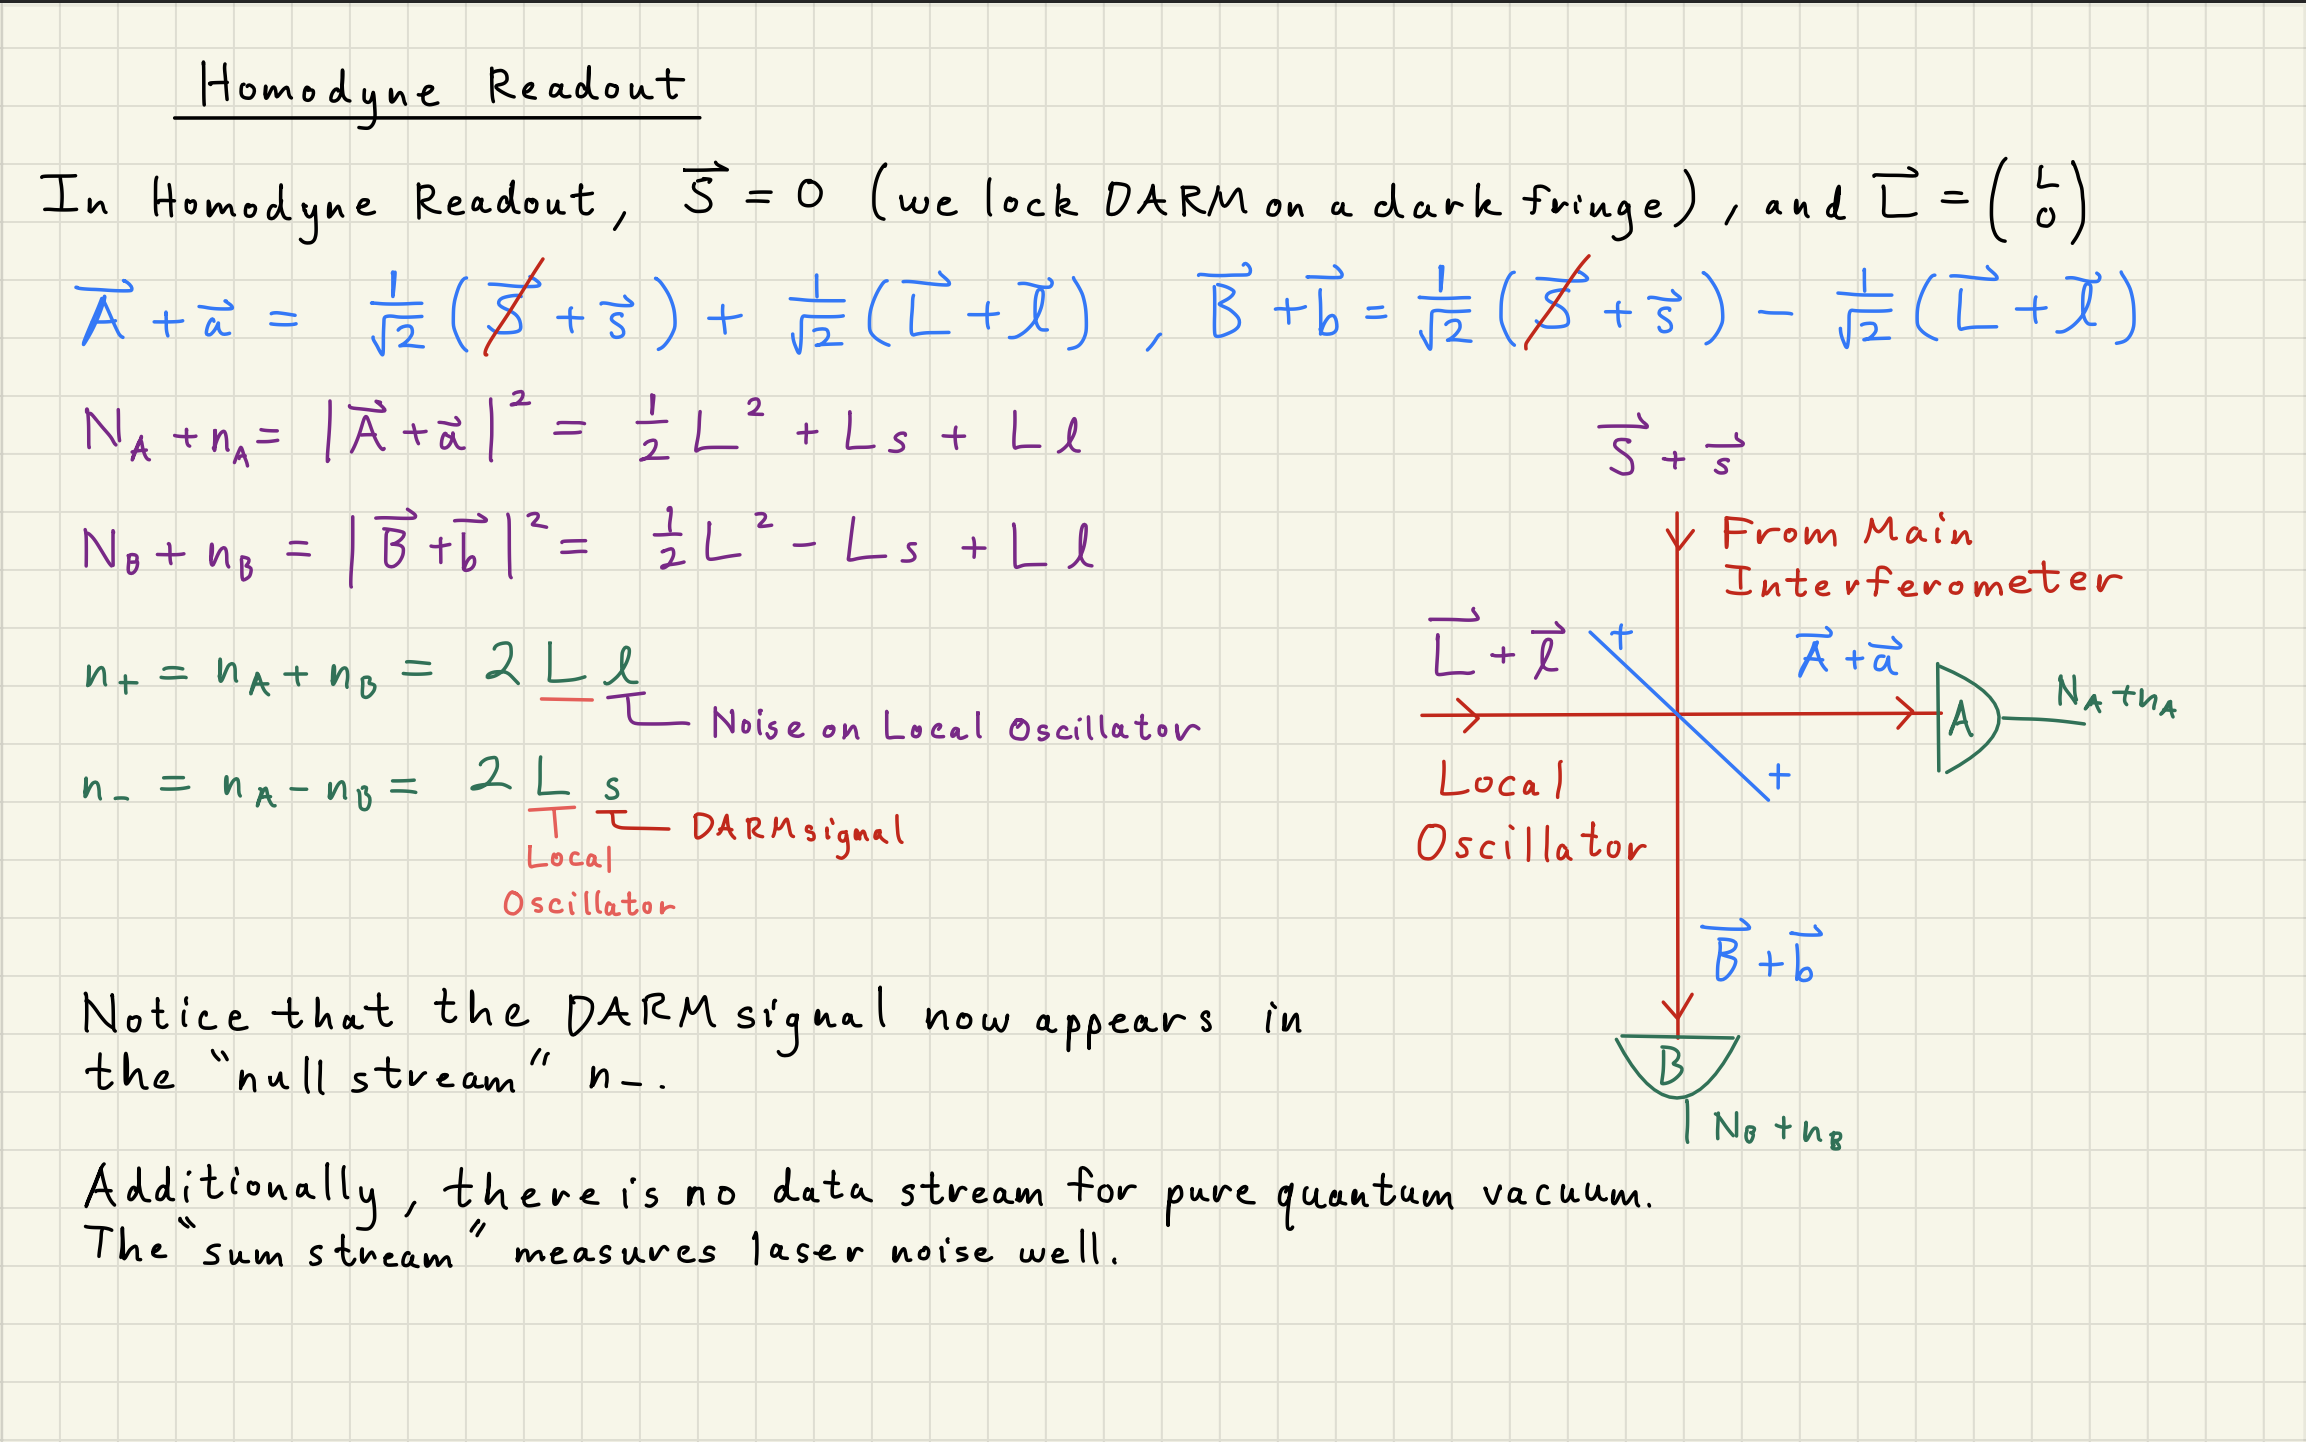 Homodyne Readout
In Homodyne Readout, S⃗ = 0 (we lock DARM on a dark fringe), and L⃗ = (L 0)
A⃗ + a⃗ = 1/√2 (S⃗ + s⃗) + 1/√2 (L⃗ + l⃗), B⃗ + b⃗ = 1/√2 (S⃗ + s⃗) − 1/√2 (L⃗ + l⃗)
N_A + n_A = |A⃗ + a⃗|² = 1/2 L² + L s + L l
N_B + n_B = |B⃗ + b⃗|² = 1/2 L² − L s + L l
n₊ = n_A + n_B = 2 L l
Noise on Local Oscillator
n₋ = n_A − n_B = 2 L s
DARM signal
Local
Oscillator
S⃗ + s⃗
From Main
Interferometer
L⃗ + l⃗
+
A⃗ + a⃗
A
N_A + n_A
+
Local
Oscillator
B⃗ + b⃗
B
N_B + n_B
Notice that the DARM signal now appears in
the "null stream" n₋.
Additionally, there is no data stream for pure quantum vacuum.
The "sum stream" measures laser noise well.